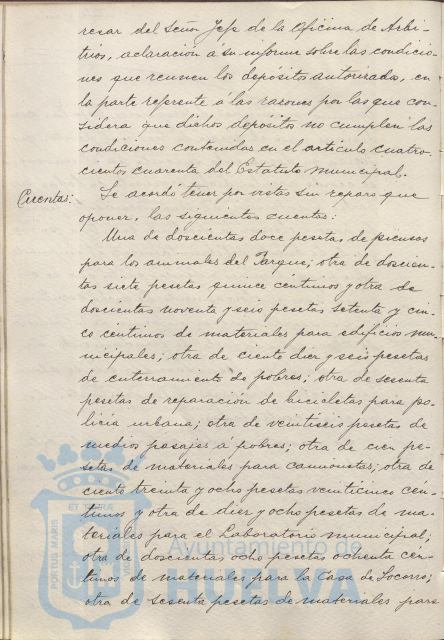 resar del Señor Jefe de la Oficina de Arbi-
trios, aclaración á su informe sobre las condicio-
nes que reunen los depósitos autorizados, en
la parte referente á las razones por las que con-
sidera que dichos depósitos no cumplen las
condiciones contenidas en el articulo cuatro-
cientos cuarenta del Estatuto municipal.
Cuentas: Se acordó tener por vistas sin reparo que
oponer, las siguientes cuentas:
Una de doscientas doce pesetas de piensos
para los animales del Parque; otra de doscien-
tas siete pesetas quince centimos y otra de
doscientas noventa y seis pesetas setenta y cin-
co centimos de materiales para edificios mu-
nicipales; otra de ciento diez y seis pesetas
de enterramiento de pobres; otra de sesenta
pesetas de reparación de bicicletas para po-
licia urbana; otra de veintiseis pesetas de
medios pasajes á pobres; otra de cien pe-
setas de materiales para camionetas; otra de
ciento treinta y ocho pesetas veinticinco cén-
timos y otra de diez y ocho pesetas de ma-
teriales para el Laboratorio municipal;
otra de doscientas ocho pesetas ochenta cen-
timos de materiales para la Casa de Socorro;
otra de sesenta pesetas de materiales para
Ayuntamiento de
HUELVA
PORTUS MARIS
ET TERRA